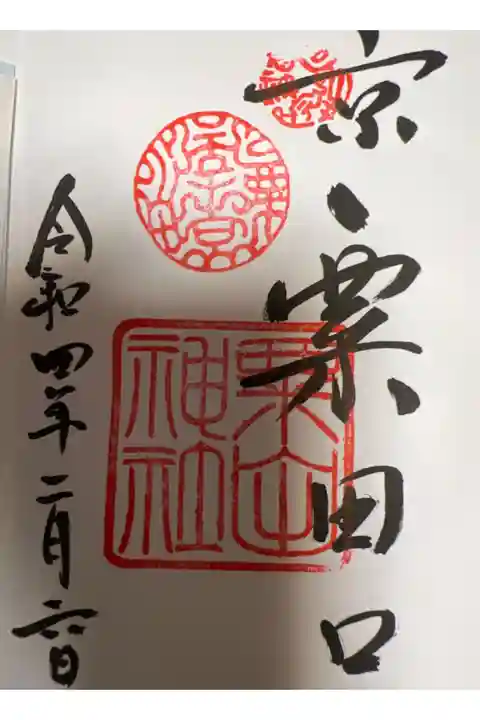 京、粟田口
粟田神社
令和四年二月六日